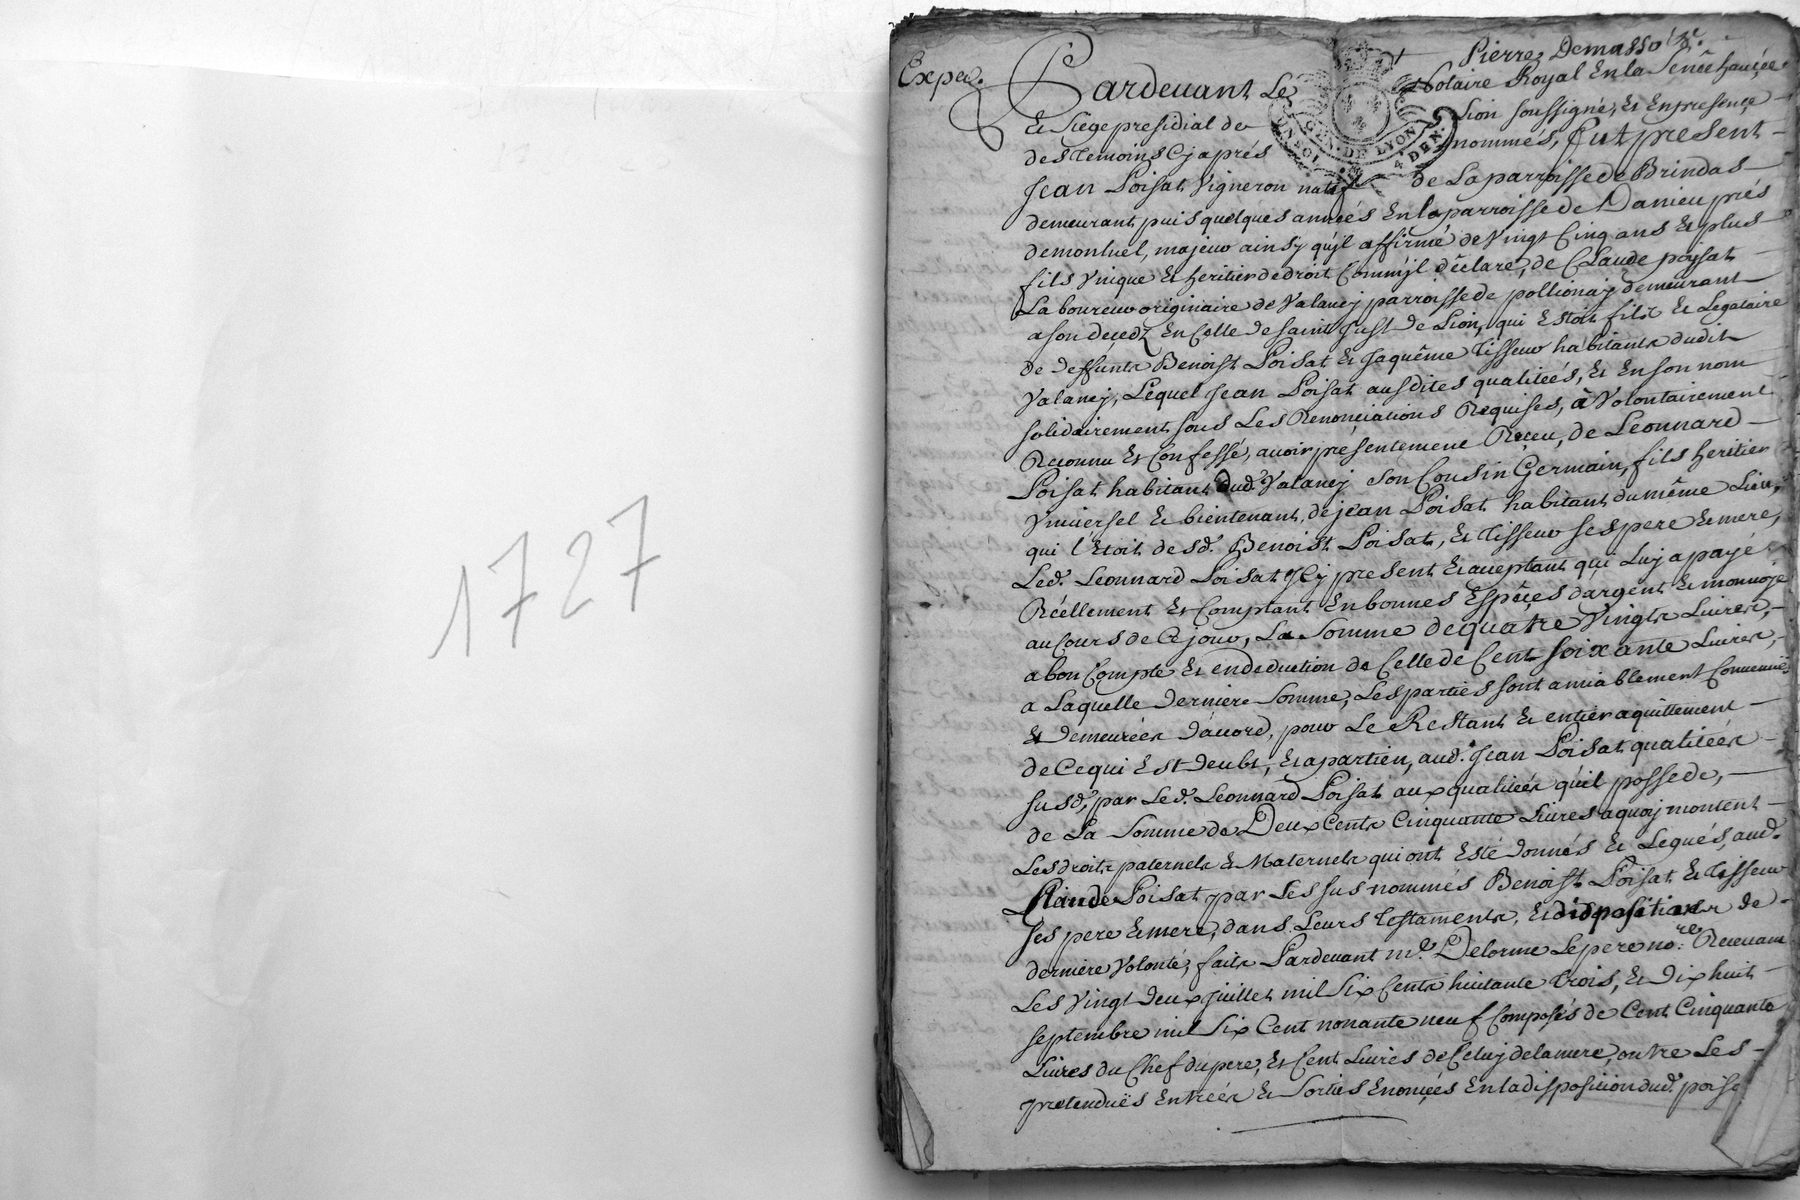 1727
Exped.
Pierre Demasso
Pardeuant Le Notaire Royal En la Senêchaucée
& Siege presidial de Lion soussigné, & En presence
des temoins Cy aprés nommés, fut present
Jean Poisat Vigneron natif de La parroisse de Brindas
demeurant puis quelques années En la parroisse de Danieu prés
de montluel, majeur ainsy qu'jl affirme de Vingt Cinq ans & plus
fils Vnique & heritier de droit Comm'jl déclare, de Claude poisat
Laboureur originaire de Valancy parroisse de pollionay demeurant
a son decedz En Celle de saint Just de Lion, qui Estoit filz & Legataire
de deffunts Benoist Poisat & Jaquême Tisseur habitants dudit
Valancy, Lequel Jean Poisat ausdites qualitées, & En son nom
solidairement sous Les Renonciations Requises, à Volontairement
Reconnu & Confessé, auoir présentement Réceu, de Léonnard
Poisat habitant dud. Valancy son Cousin Germain, fils heritier
Vniuersel & bientenant, de jean Poisat habitant du même Lieu,
qui l'Etoit desd. Benoist Poisat, & Tisseur ses pere & mere,
Led. Leonnard Poisat Jcy present & aceptant qui Luy a payé
Réellement & Comptant En bonnes Espêces d'argent & monnoye
au Cours de Ce jour, La Somme de quatre Vingts Liures,
a bon Compte & en deduction de Celle de Cent soixante Liures,
a Laquelle derniere Somme, Les parties sont amiablement Conuenuës
& demeurées d'acord, pour Le Restant & entier aquittement
de Ce qui Est deubt, & apartien, aud. Jean Poisat qualitées
susd., par Led. Leonnard Poisat aux qualitées qu'il possede,
de La Somme de Deux Cents Cinquante Liures a quoy montent
Les droits paternels & Maternels qui ont Esté donnés & Legués, aud.
Claude Poisat par Les sus nommés Benoist Poisat & Tisseur
ses pere & mere, dans Leurs Testaments, & dispositions de
derniere Volonté, faits Pardeuant me. Delorme Le pere no.re Receuant
Les Vingt deux juillet mil Six Cents huitante trois, & dix huit
septembre mil Six Cent nonante neuf Composés de Cent Cinquante
Liures du Chef du pere, & Cent Liures de Celuy de la mere, outre Les
pretenduës Entrées & Sorties Enoncées En la disposition dud.